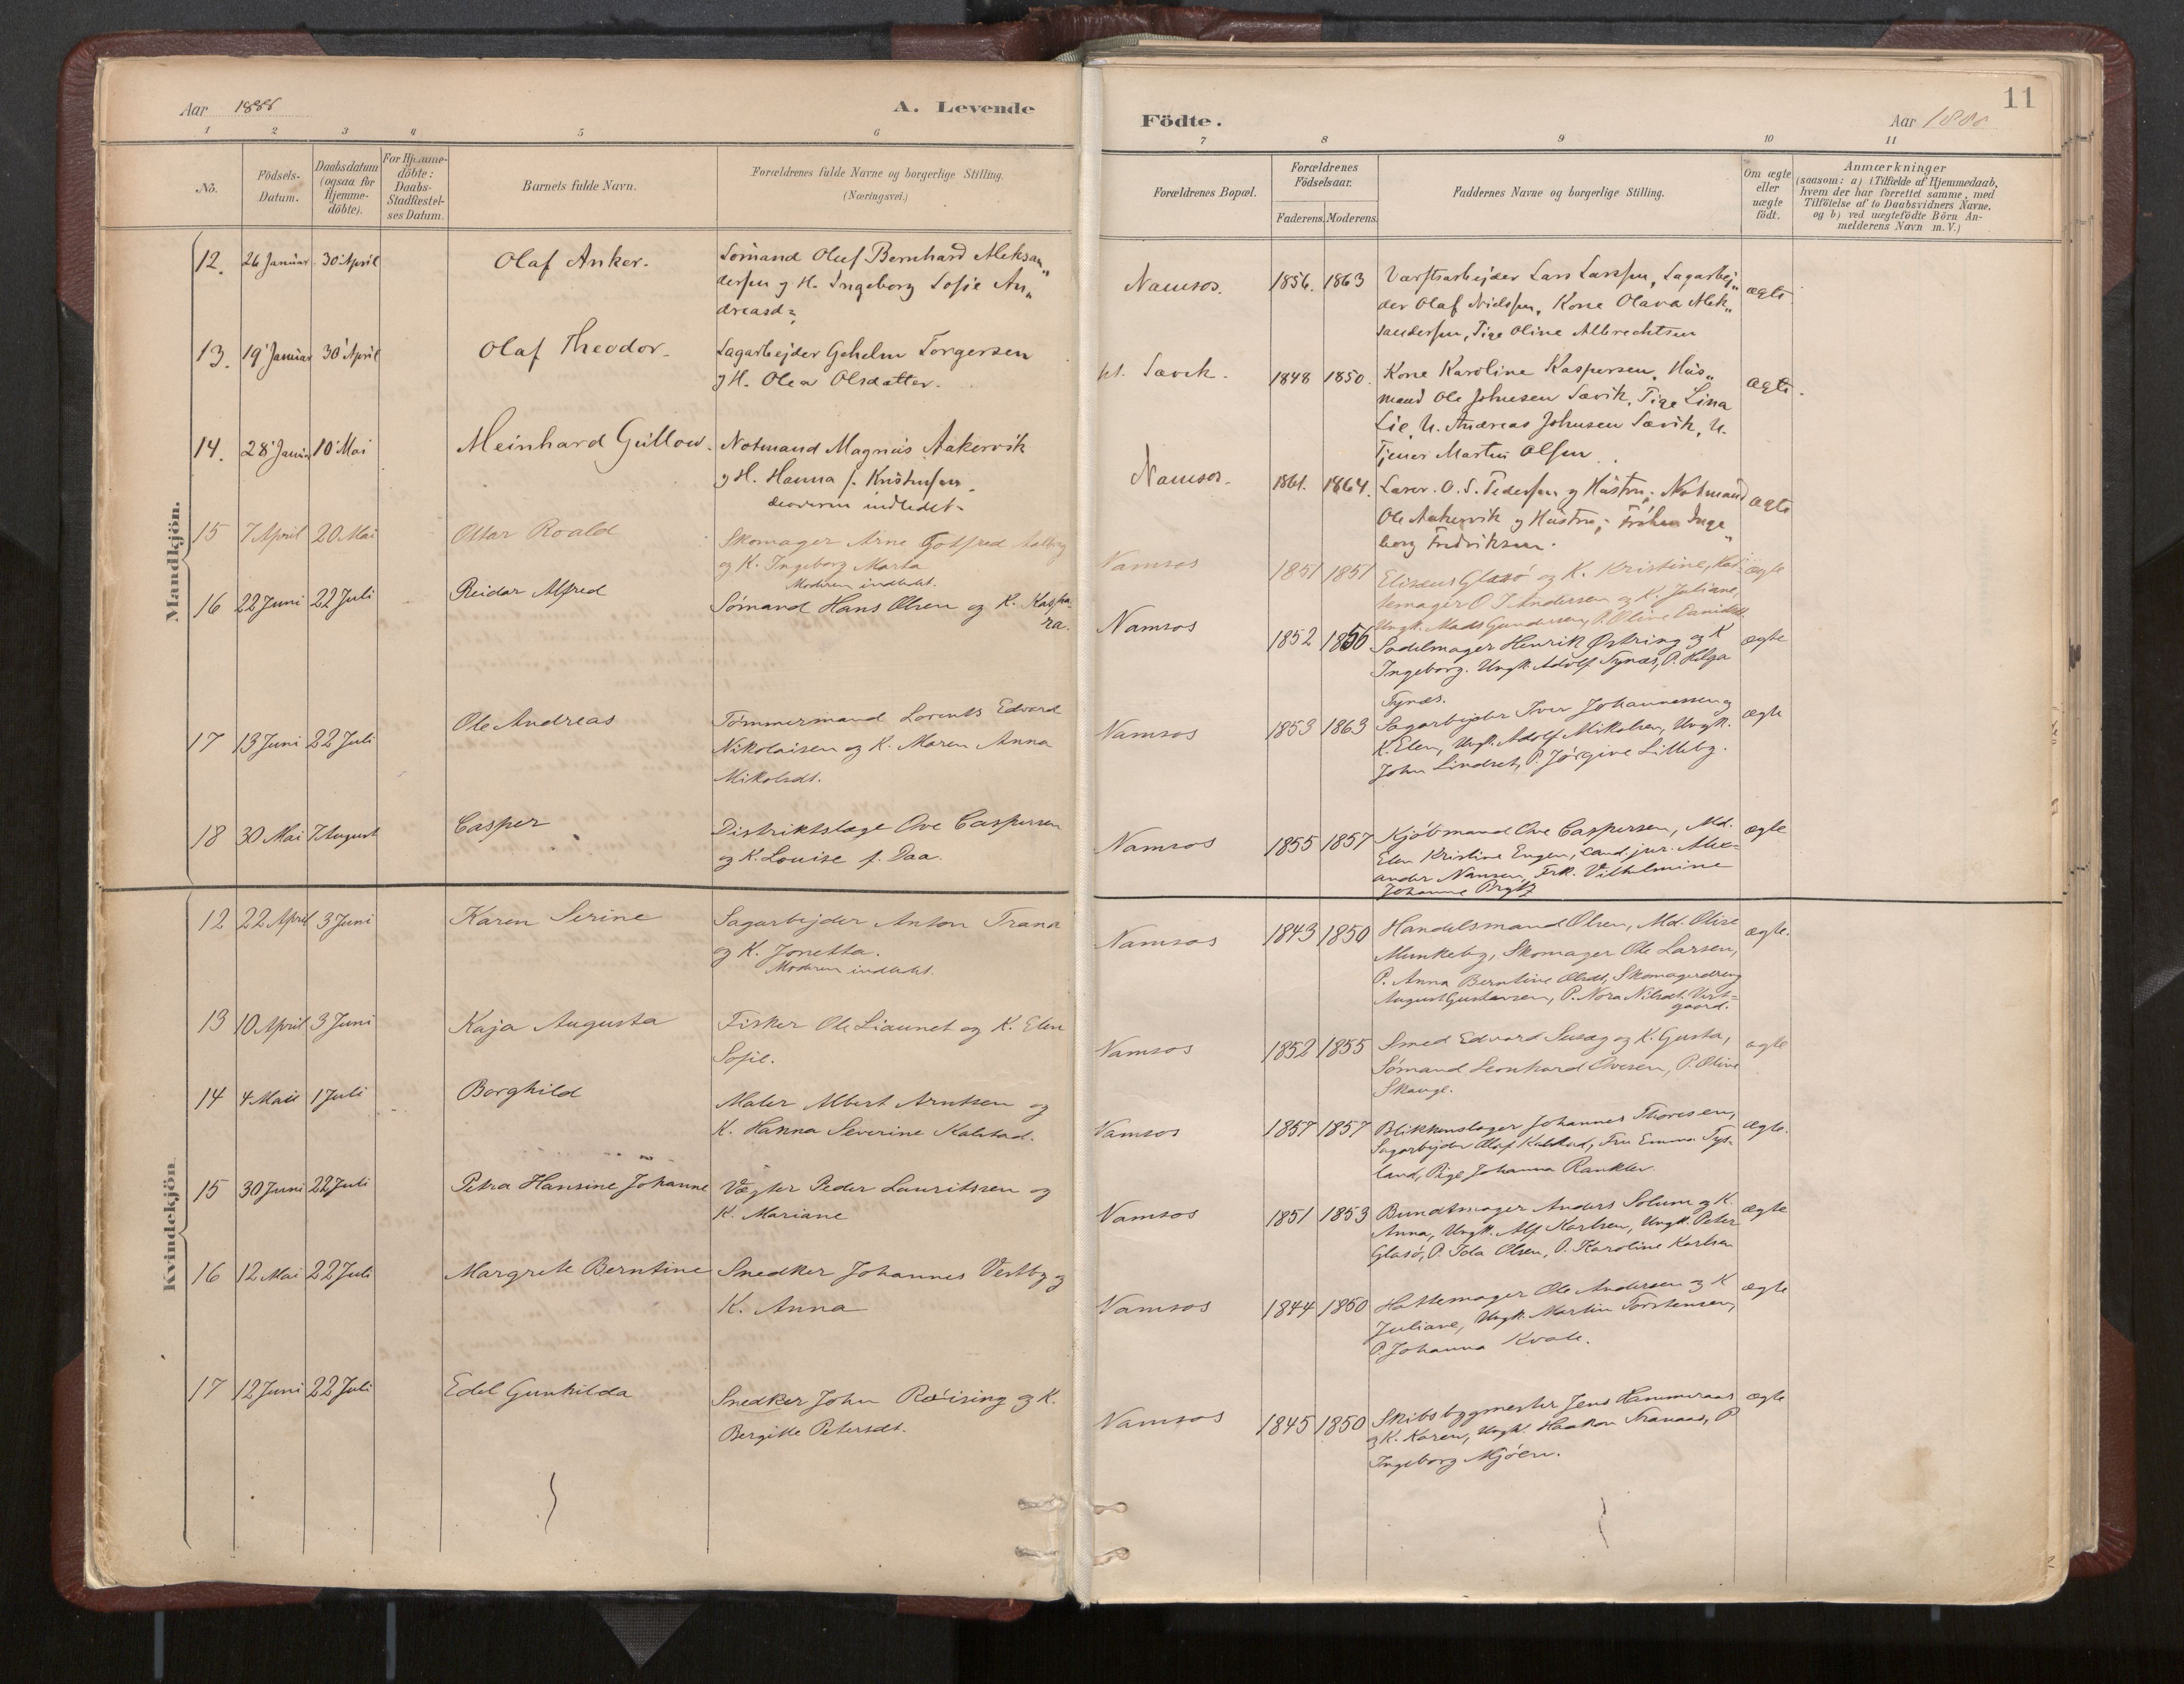 11
Aar 1888
A. Levende
Födte.
Aar 1888
1 2 3 4 5 6 7 8 9 10 11
No.
Födsels-
Datum.
Daabsdatum
(ogsaa for
Hjemme-
döbte).
For Hjemme-
döbte:
Daabs-
Stadfæstel-
ses Datum.
Barnets fulde Navn.
Forældrenes fulde Navne og borgerlige Stilling.
(Næringsvei.)
Forældrenes Bopæl.
Forældrenes
Födselsaar.
Faderens. Moderens.
Faddernes Navne og borgerlige Stilling.
Om ægte
eller
uægte
födt.
Anmærkninger
(saasom: a) i Tilfælde af Hjemmedaab,
hvem der har forrettet samme, med
Tilföielse af to Daabsvidners Navne.
og b) ved uægtefödte Börn An-
melderens Navn m. V.)
Mandkjön.
12. 26 Januar 30 April Olaf Anker.
Sømand Oluf Bernhard Aleksan„
dersen og H. Ingeborg Sofie An„
dreasd.
Namsos. 1856. 1863
Værftsarbejder Lars Larssen, Sagarbej„
der Olaf Nielssen, Kone Olava Alek„
sandersen, Pige Oline Albrechtsen
ægte
13. 19 Januar 30 April Olaf Theodor.
Sagarbejder Gehelm Torgersen
og H. Olea Olsdatter.
pl. Sævik. 1848 1850.
Kone Karoline Kaspersen, Hus„
mand Ole Johnesen Sævik, Pige Lina
Lie, U. Andreas Johnsen Sævik, U.
Tjener Martin Olsen.
ægte.
14. 28 Januar 10 Mai Meinhard Gullow.
Notmand Magnus Aakervik
og H. Hanna f. Kristensen.
Moderen indledet.
Namsos. 1861. 1864.
Lærer O. S. Pedersen og Hustru; Notmand
Ole Aakervik og Hustru; Frøken Inge„
borg Fredriksen.
ægte
15 7 April 20 Mai Ottar Roald
Skomager Arne Gotfred Aalberg
og K. Ingeborg Marta
Moderen indledet.
Namsos 1851 1851
Eliseus Glasø og K. Kristine, Hat-
temager O J Andersen og K. Juliane,
Ungk. Mads Gundersen, P. Oline Danielsd.
ægte
16 22 Juni 22 Juli Reidar Alfred
Sømand Hans Olsen og K. Kaspa-
ra.
Namsos 1852 1856
Sadelmager Henrik Østring og K
Ingeborg. Ungk. Adolf Tynæs, P. Helga
Tynæs.
ægte
17 13 Juni 22 Juli Ole Andreas
Tømmermand Lorents Edvard
Nikolaisen og K. Maren Anna
Mikolsdt.
Namsos 1853 1863
Sagarbejder Iver Johannessen og
K. Elen, Ungk. Adolf Mikalsen, Ungk.
John Lindset, P. Jørgine Lilleby.
ægte
18 30 Mai 7 August Casper
Distriktslæge Ove Caspersen
og K. Louise f. Daa.
Namsos 1855 1857
Kjøbmand Ove Caspersen, Md.
Elen Kristine Engen, cand. jur. Alex-
ander Nansen, Frk. Vilhelmine
Johanne Brytz
ægte
Kvindekjön
12 22 April 3 Juni Karen Serine
Sagarbejder Anton Trana
og K. Jonetta.
Moderen indledet.
Namsos 1843 1850
Handelsmand Olsen, Md. Olise
Munkeby, Skomager Ole Larsen,
P. Anna Berntine Olsdt, Skomagerdreng
August Gustavsen, P. Nora Nilsdt. Vest-
gaard.
ægte.
13 10 April 3 Juni Kaja Augusta
Fisker Ole Liaunet og K. Elen
Sofie.
Namsos 1852 1855
Smed Edvard Susæg og K. Gusta,
Sømand Leonhard Ovesen, P. Oline
Skauge.
ægte
14 4 Mai 1 Juli Borghild
Maler Albert Arntsen og
K. Hanna Severine Kalstad.
Namsos 1857 1857
Blikkenslager Johannes Thoresen,
Sagarbejder Olaf Kalstad, Fru Emma Tys-
land, Pige Johanna Ranklev.
ægte.
15 30 Juni 22 Juli Petra Hansine Johanne
Vægter Peder Lauritssen og
K. Mariane
Namsos 1851 1853
Bundtmager Anders Solum og K.
Anna, Ungk. Alf Karlsen, Ungk. Peter
Glasø, P. Ida Olsen, P. Karoline Karlsen
ægte
16 12 Mai 22 Juli Margrete Berntine
Snedker Johannes Vestby og
K. Anna
Namsos 1844 1850
Hattemager Ole Andersen og K
Juliane, Ungk. Martin Torstensen,
P. Johanna Kvale.
ægte
17 12 Juni 22 Juli Edel Gunhilda
Snedker John Røising og K.
Bergitte Petersdt.
Namsos 1845 1850
Skibsbygmester Jens Hammeraas
og K. Karen, Ungk. Haakon Tranaas, P
Ingeborg Mjøen.
ægte